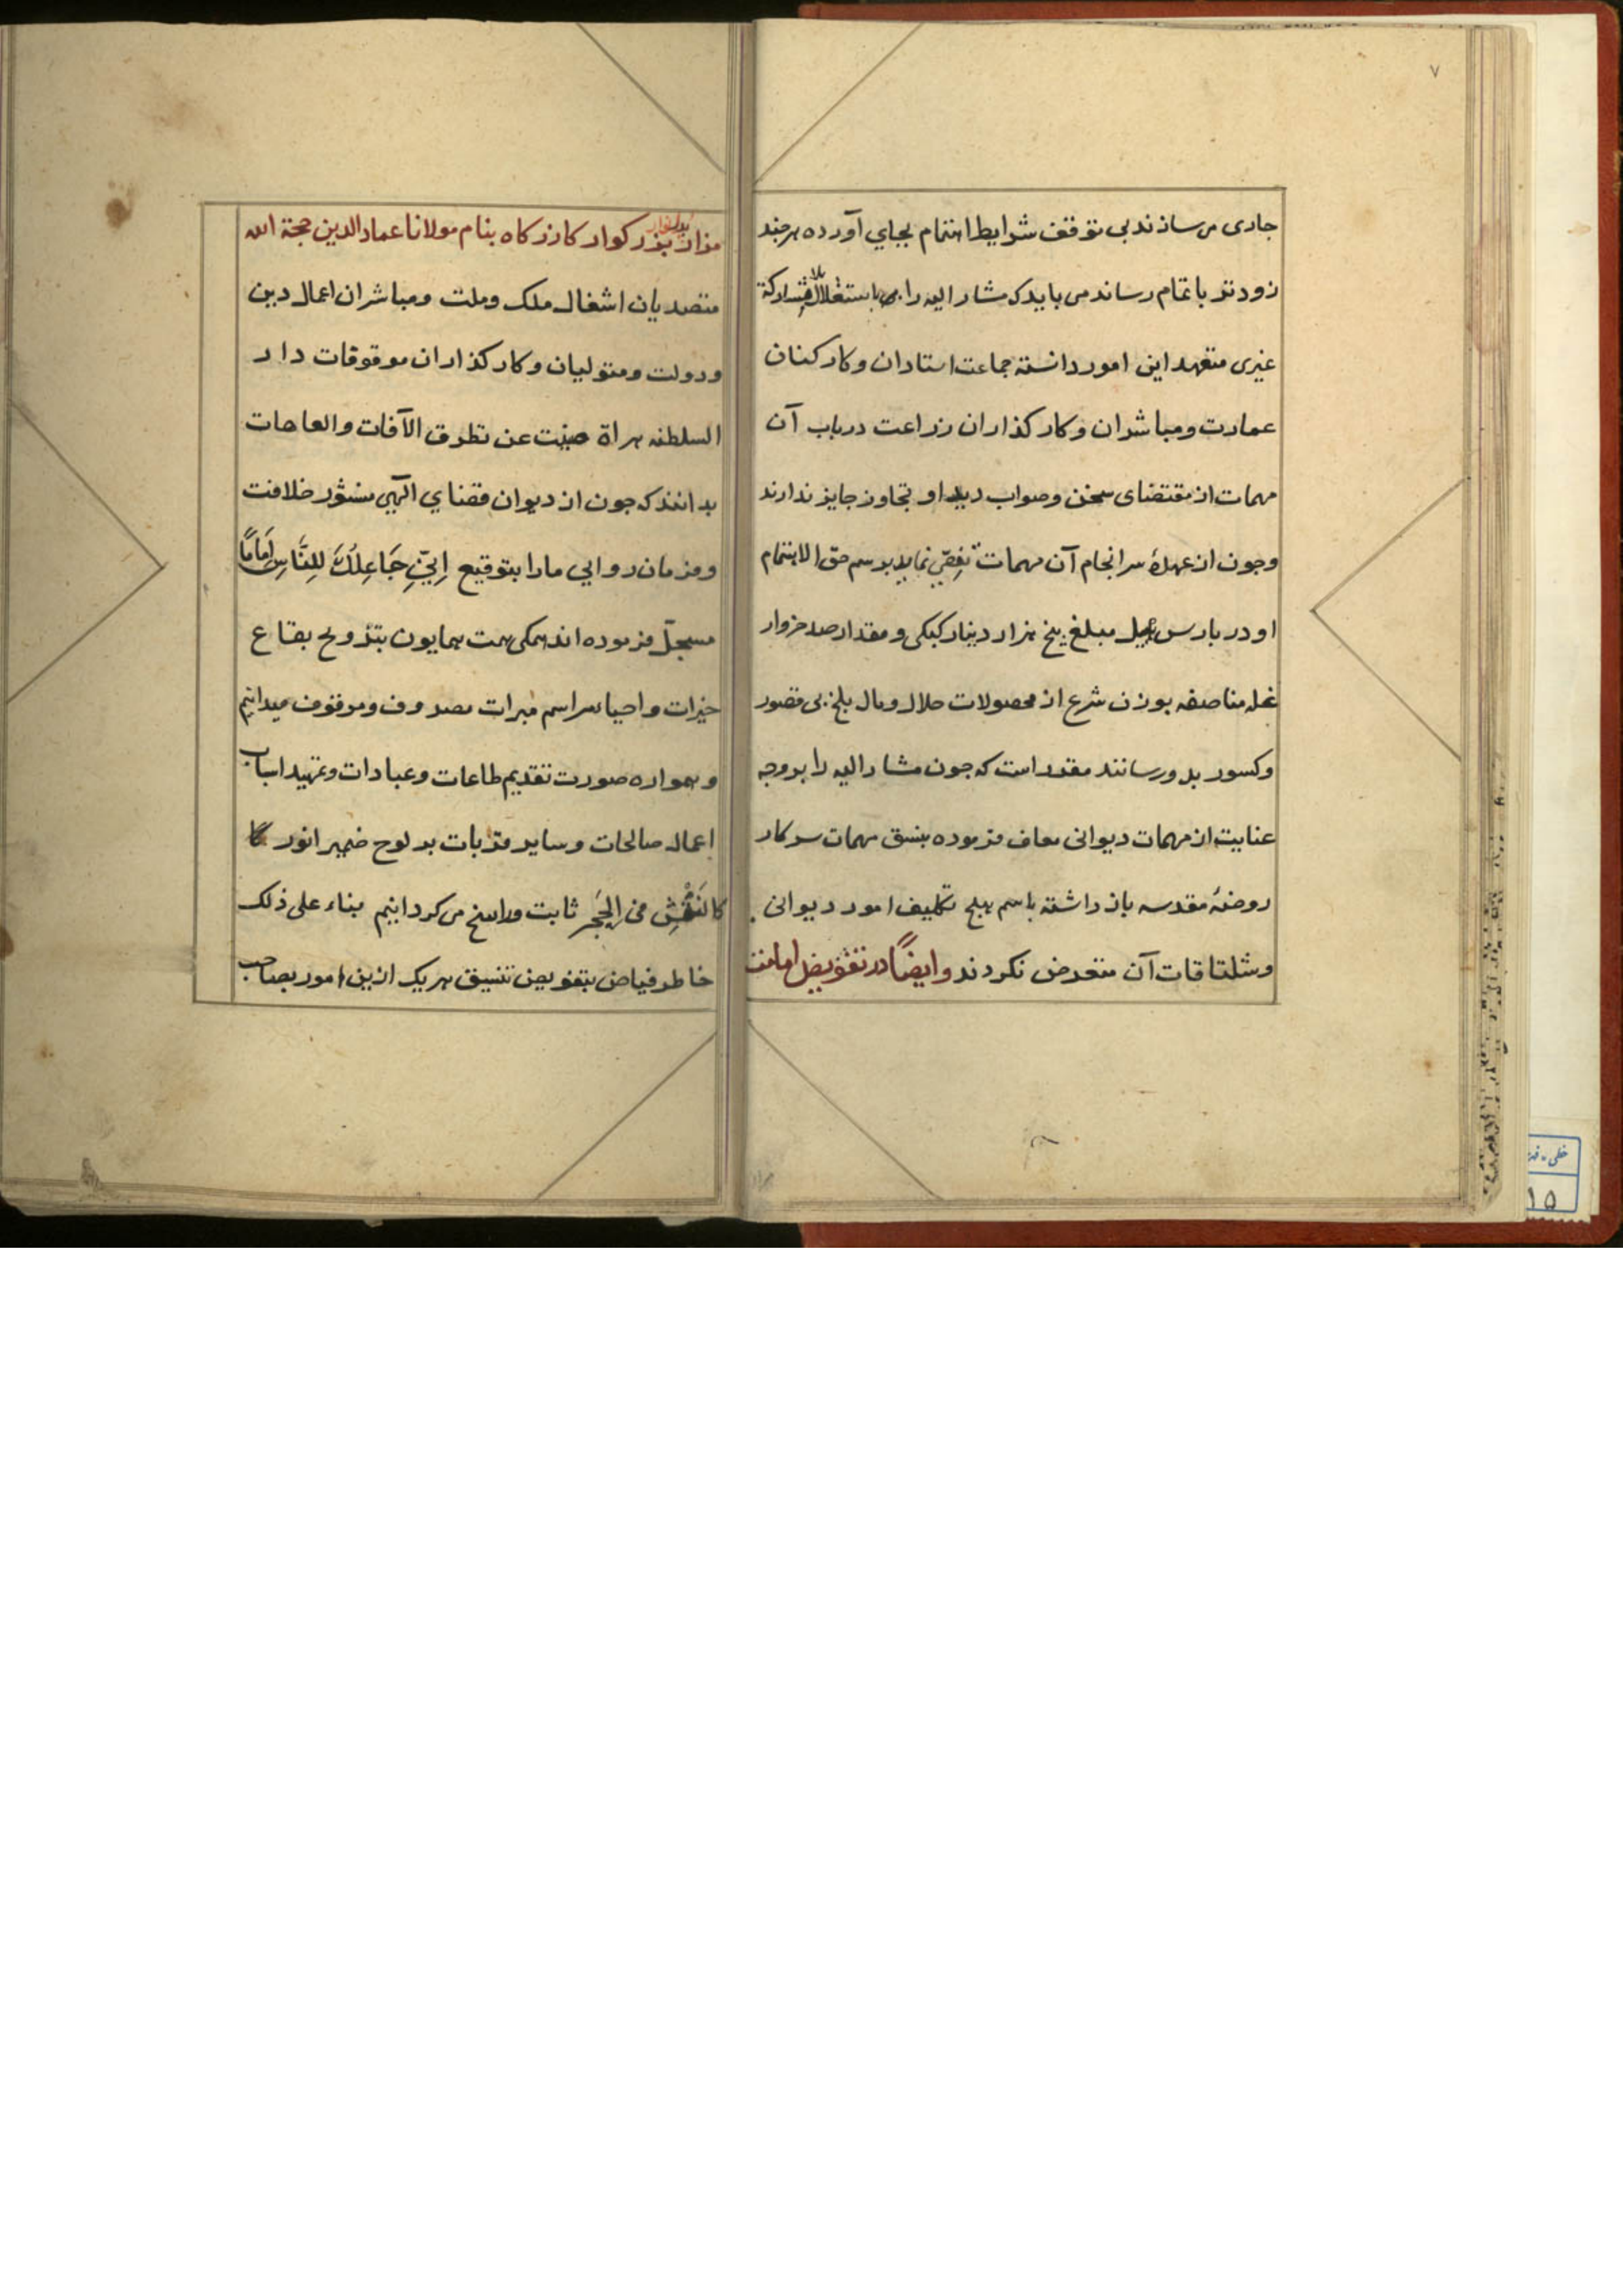 ۷
جاری می سازند بی توقف شرایط اهتمام بجای آورده هرچند
زودتر باتمام رساند می باید که مشار الیه را باستقلال بلا مشارکة
غیری متعهد این امور دانسته جماعت استادان و کارکنان
عمارت و مباشران و کارکذاران زراعت درباب آن
مهمات از مقتضای سخن و صواب دید او تجاوز جایز ندارند
و جون از عهدهٔ سرانجام آن مهمات تفصی نماید برسم حق الاهتمام
او در بارس ییل مبلغ پنج هزار دینار کبکی و مقدار صد خروار
غله مناصفه بوزن شرع از محصولات حلال و مال بلخ بی قصور
و کسور بدو رسانند مقرر است که جون مشار الیه را بر وجه
عنایت از مهمات دیوانی معاف فرموده بنسق مهمات سرکار
روضهٔ مقدسه باز داشته باسم هیچ تکلیف امور دیوانی
و شلتاقات آن متعرض نکردند و ایضًا در تفویض امامت
مزار بزرکوار کازرکاه بنام مولانا عماد الدین حجة الله
متصدیان اشغال ملک و ملت و مباشران اعمال دین
و دولت و متولیان و کارکذاران موقوفات دار
السلطنه هراة صینت عن تطرق الآفات و العاهات
بدانند که جون از دیوان قضای الهی منشور خلافت
و فرمان روایی مارا بتوقیع اِنِّی جَاعِلُکَ لِلنَّاسِ اِمَامًا
مسجّل فرموده اند همکی همت همایون بترویج بقاع
خیرات و احیا مراسم مبرات مصروف و موقوف میدانیم
و همواره صورت تقدیم طاعات و عبادات و تمهید اسباب
اعمال صالحات و سایر قربات بر لوح ضمیر انور
کالنَقْشِ فی الحَجَر ثابت و راسخ می کردانیم بناء علی ذلک
خاطر فیاض بتفویض تنسیق هریک ازین امور بصاحب
خطی
۱۵